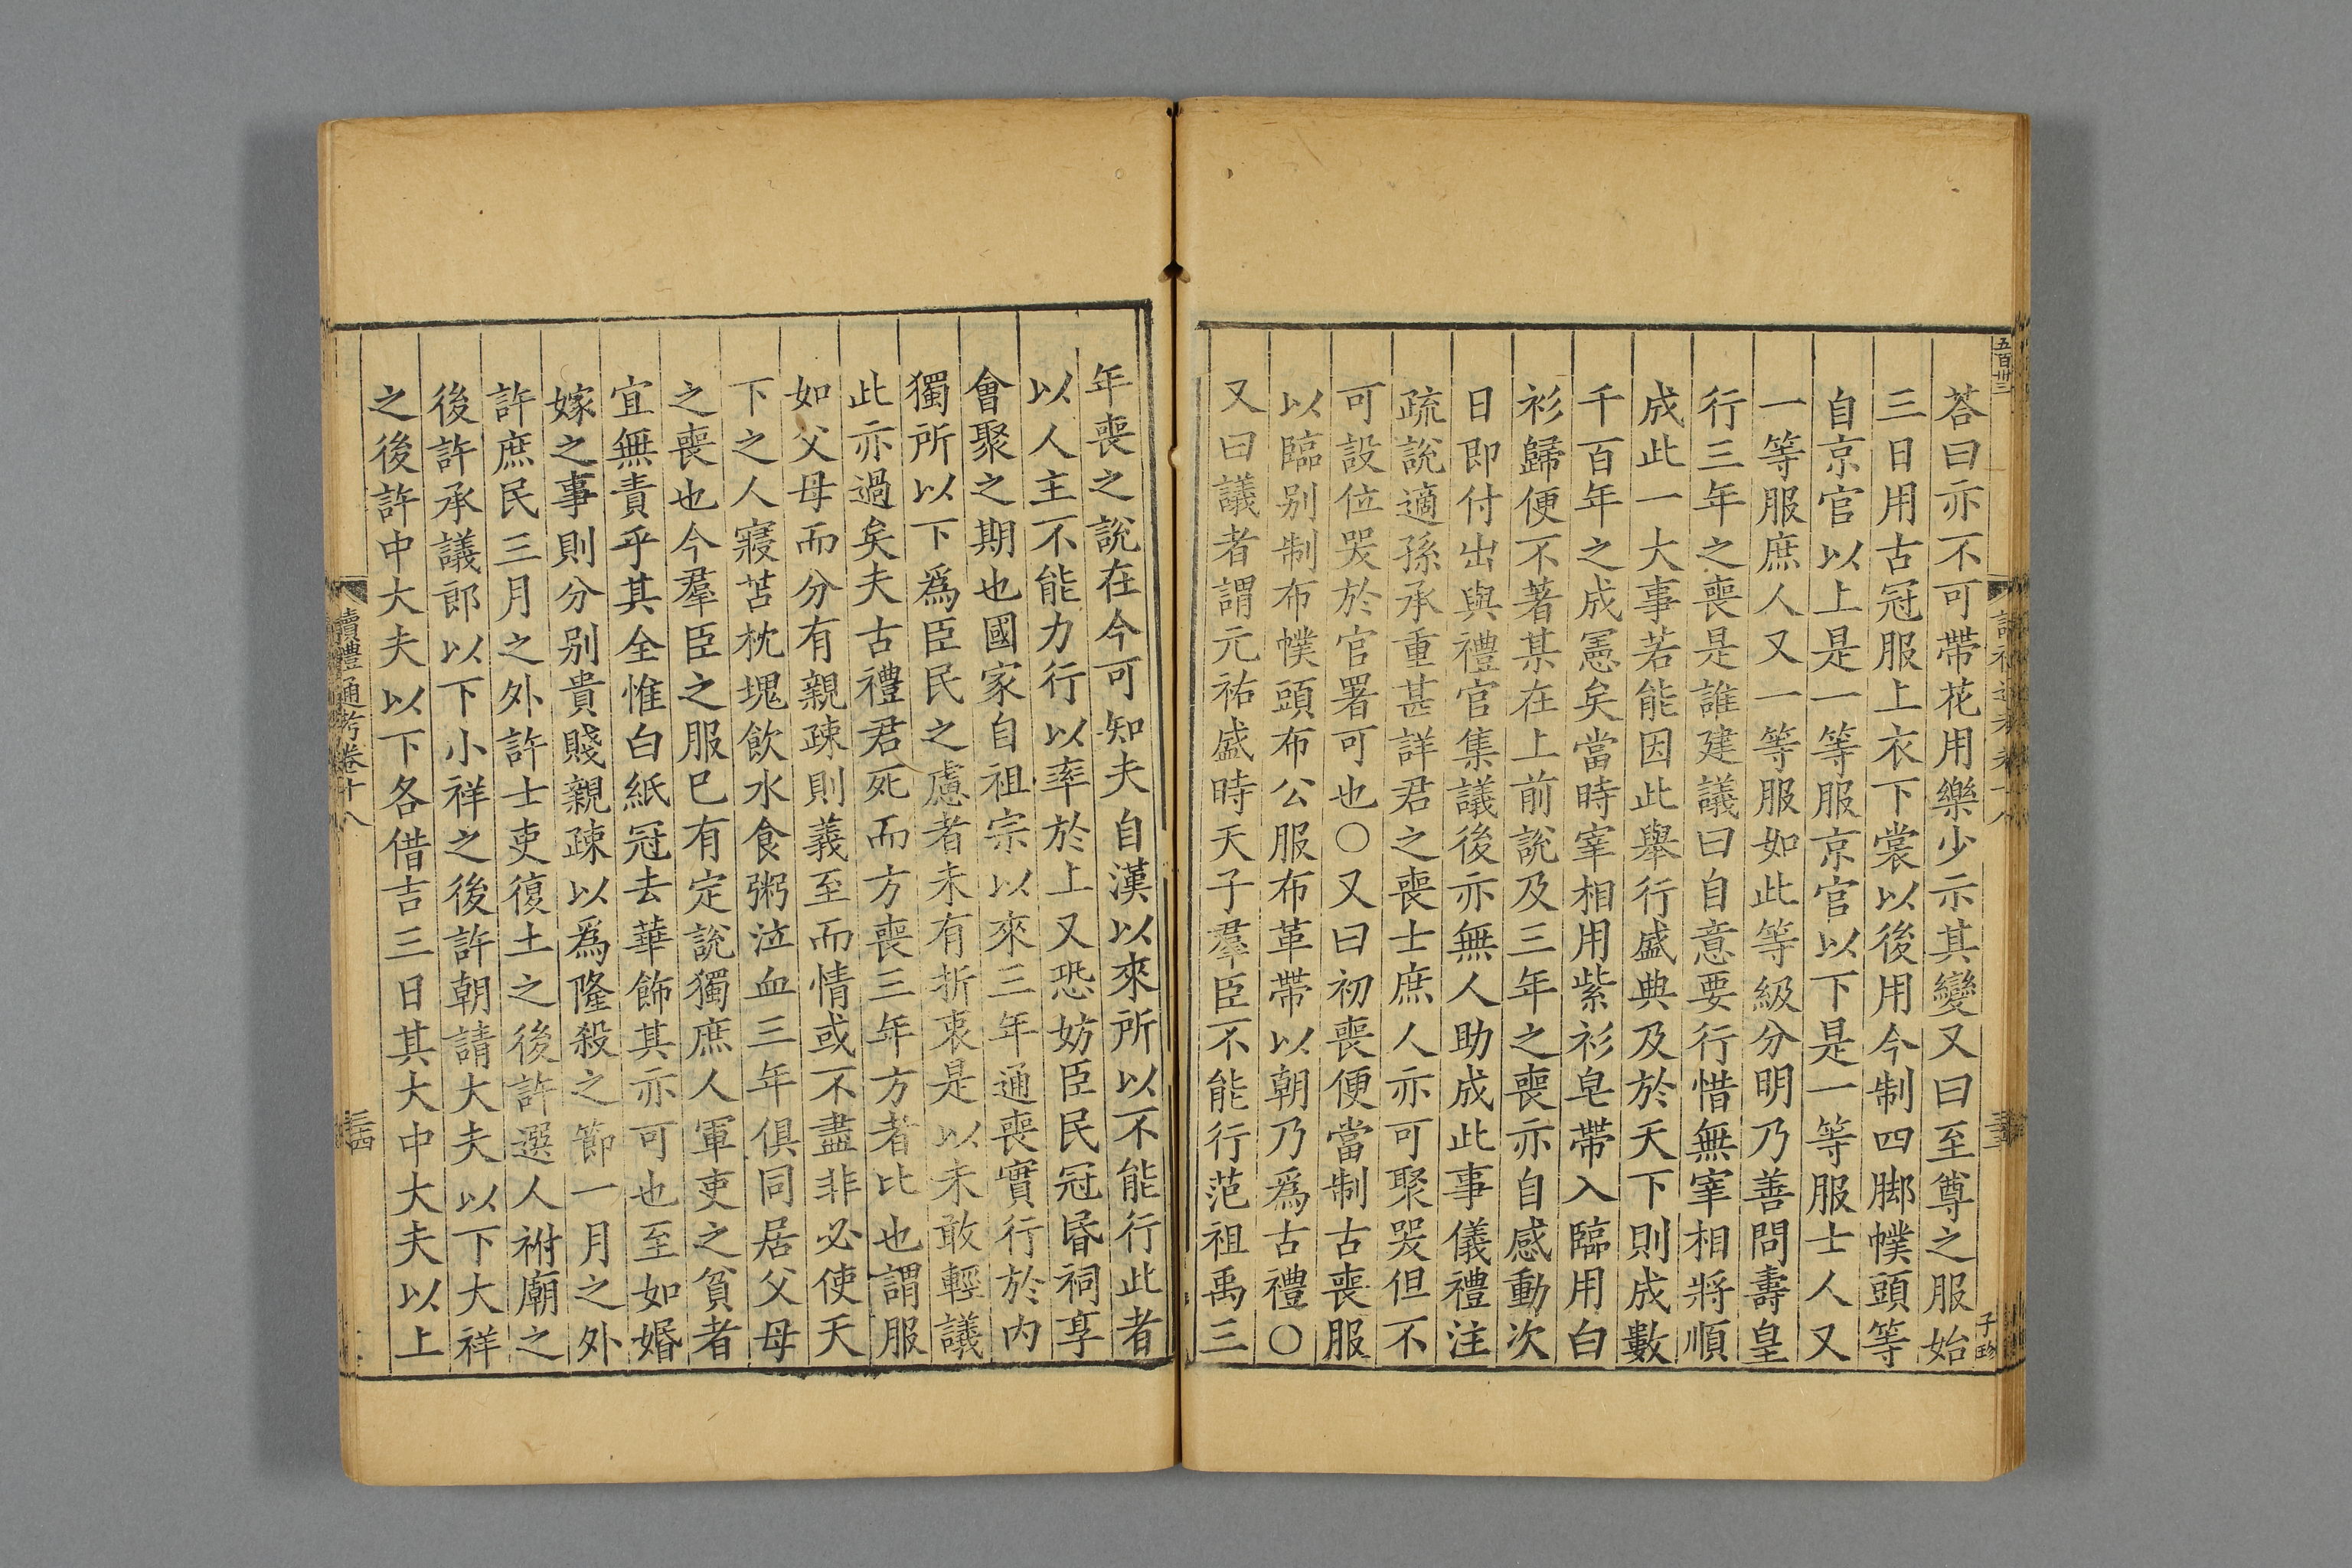 五百卅三
讀禮通考卷十八
三十三
子珍
荅曰亦不可帶花用樂少示其變又曰至尊之服始
三日用古冠服上衣下裳以後用今制四脚幞頭等
自京官以上是一等服京官以下是一等服士人又
一等服庶人又一等服如此等級分明乃善問壽皇
行三年之喪是誰建議曰自意要行惜無宰相將順
成此一大事若能因此舉行盛典及於天下則成數
千百年之成憲矣當時宰相用紫衫皂帶入臨用白
衫歸便不著某在上前說及三年之喪亦自感動次
日即付出與禮官集議後亦無人助成此事儀禮注
疏說適孫承重甚詳君之喪士庶人亦可聚哭但不
可設位哭於官署可也○又曰初喪便當制古喪服
以臨别制布幞頭布公服布革帶以朝乃爲古禮○
又曰議者謂元祐盛時天子羣臣不能行范祖禹三
年喪之說在今可知夫自漢以來所以不能行此者
以人主不能力行以率於上又恐妨臣民冠昏祠享
會聚之期也國家自祖宗以來三年通喪實行於内
獨所以下爲臣民之慮者未有折衷是以未敢輕議
此亦過矣夫古禮君死而方喪三年方者比也謂服
如父母而分有親疎則義至而情或不盡非必使天
下之人寢苫枕塊飲水食粥泣血三年俱同居父母
之喪也今羣臣之服巳有定說獨庶人軍吏之貧者
宜無責乎其全惟白紙冠去華飾其亦可也至如婚
嫁之事則分别貴賤親疎以爲隆殺之節一月之外
許庶民三月之外許士吏復土之後許選人祔廟之
後許承議郎以下小祥之後許朝請大夫以下大祥
之後許中大夫以下各借吉三日其大中大夫以上
讀禮通考卷十八
三十四